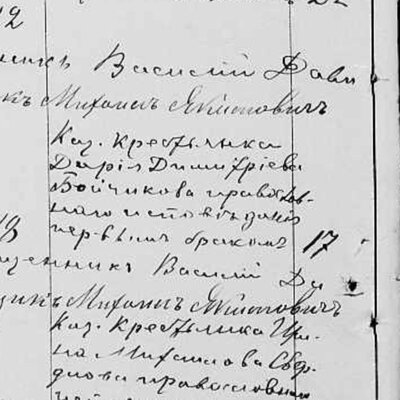 12
Василий Дави
Михаилъ Якимовичъ
Каз. крестьянка
Дарія Димитріева
Бойчикова православ-
наго исповѣданія
первымъ бракомъ 17
18
щенникъ Василий Да
щикъ Михаилъ Якимовичъ
Каз. крестьянка Ири-
на Михаилова
православнаго